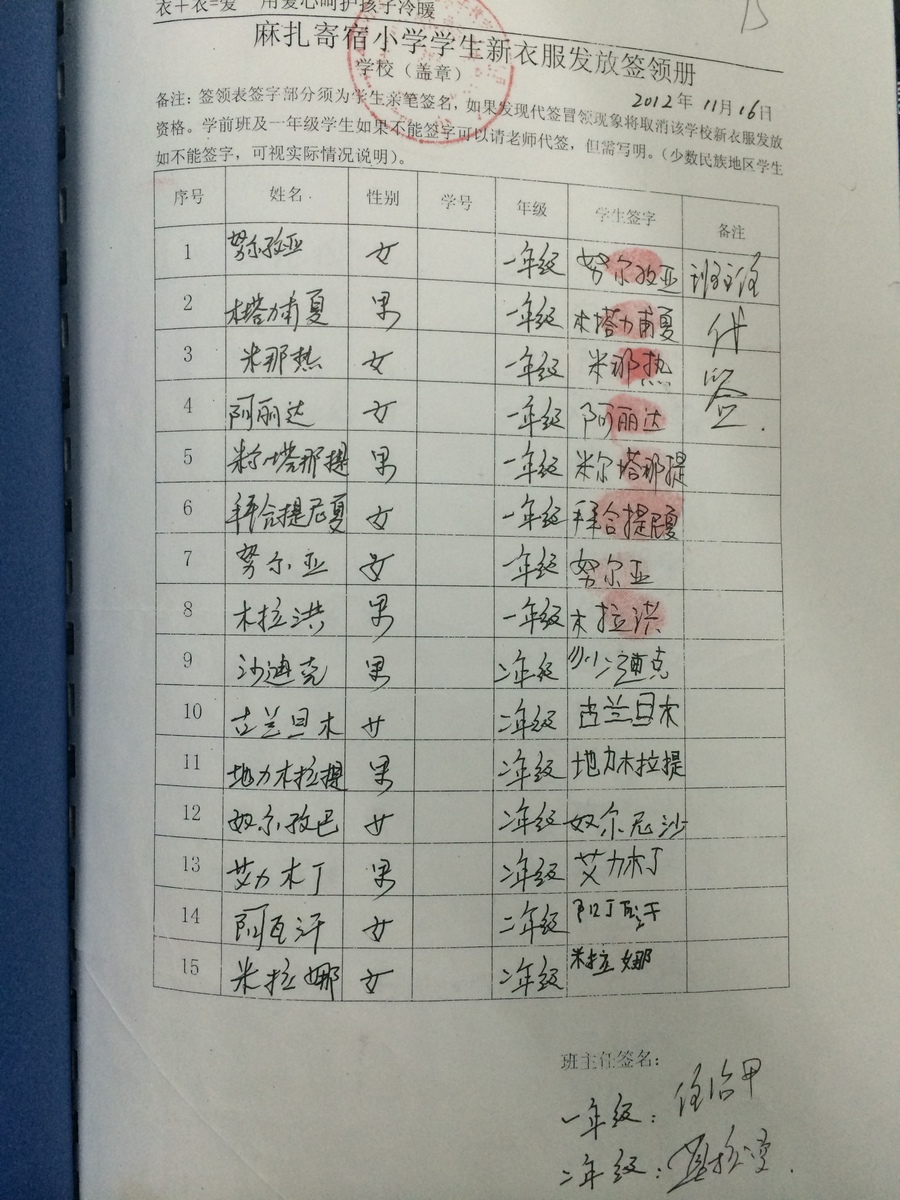 衣+衣=爱 用爱心呵护孩子冷暖
麻扎寄宿小学学生新衣服发放签领册
学校（盖章）
2012年 11月16日
备注：签领表签字部分须为学生亲笔签名，如果发现代签冒领现象将取消该学校新衣服发放
资格。学前班及一年级学生如果不能签字可以请老师代签，但需写明。（少数民族地区学生
如不能签字，可视实际情况说明）。
序号 姓名 性别 学号 年级 学生签字 备注
1 努尔孜亚 女 一年级 努尔孜亚 班主任
2 木塔力甫夏 男 一年级 木塔力甫夏 代
3 米那热 女 一年级 米那热 签.
4 阿丽达 女 一年级 阿丽达
5 米尔塔那提 男 一年级 米尔塔那提
6 拜合提尼夏 女 一年级 拜合提尼夏
7 努尔亚 女 一年级 努尔亚
8 木拉洪 男 一年级 木拉洪
9 沙迪克 男 二年级 沙迪克
10 古兰旦木 女 二年级 古兰旦木
11 地力木拉提 男 二年级 地力木拉提
12 奴尔孜巴 女 二年级 奴尔尼沙
13 艾力木丁 男 二年级 艾力木丁
14 阿瓦汗 女 二年级
15 米拉娜 女 二年级 米拉娜
班主任签名：
一年级：
二年级：